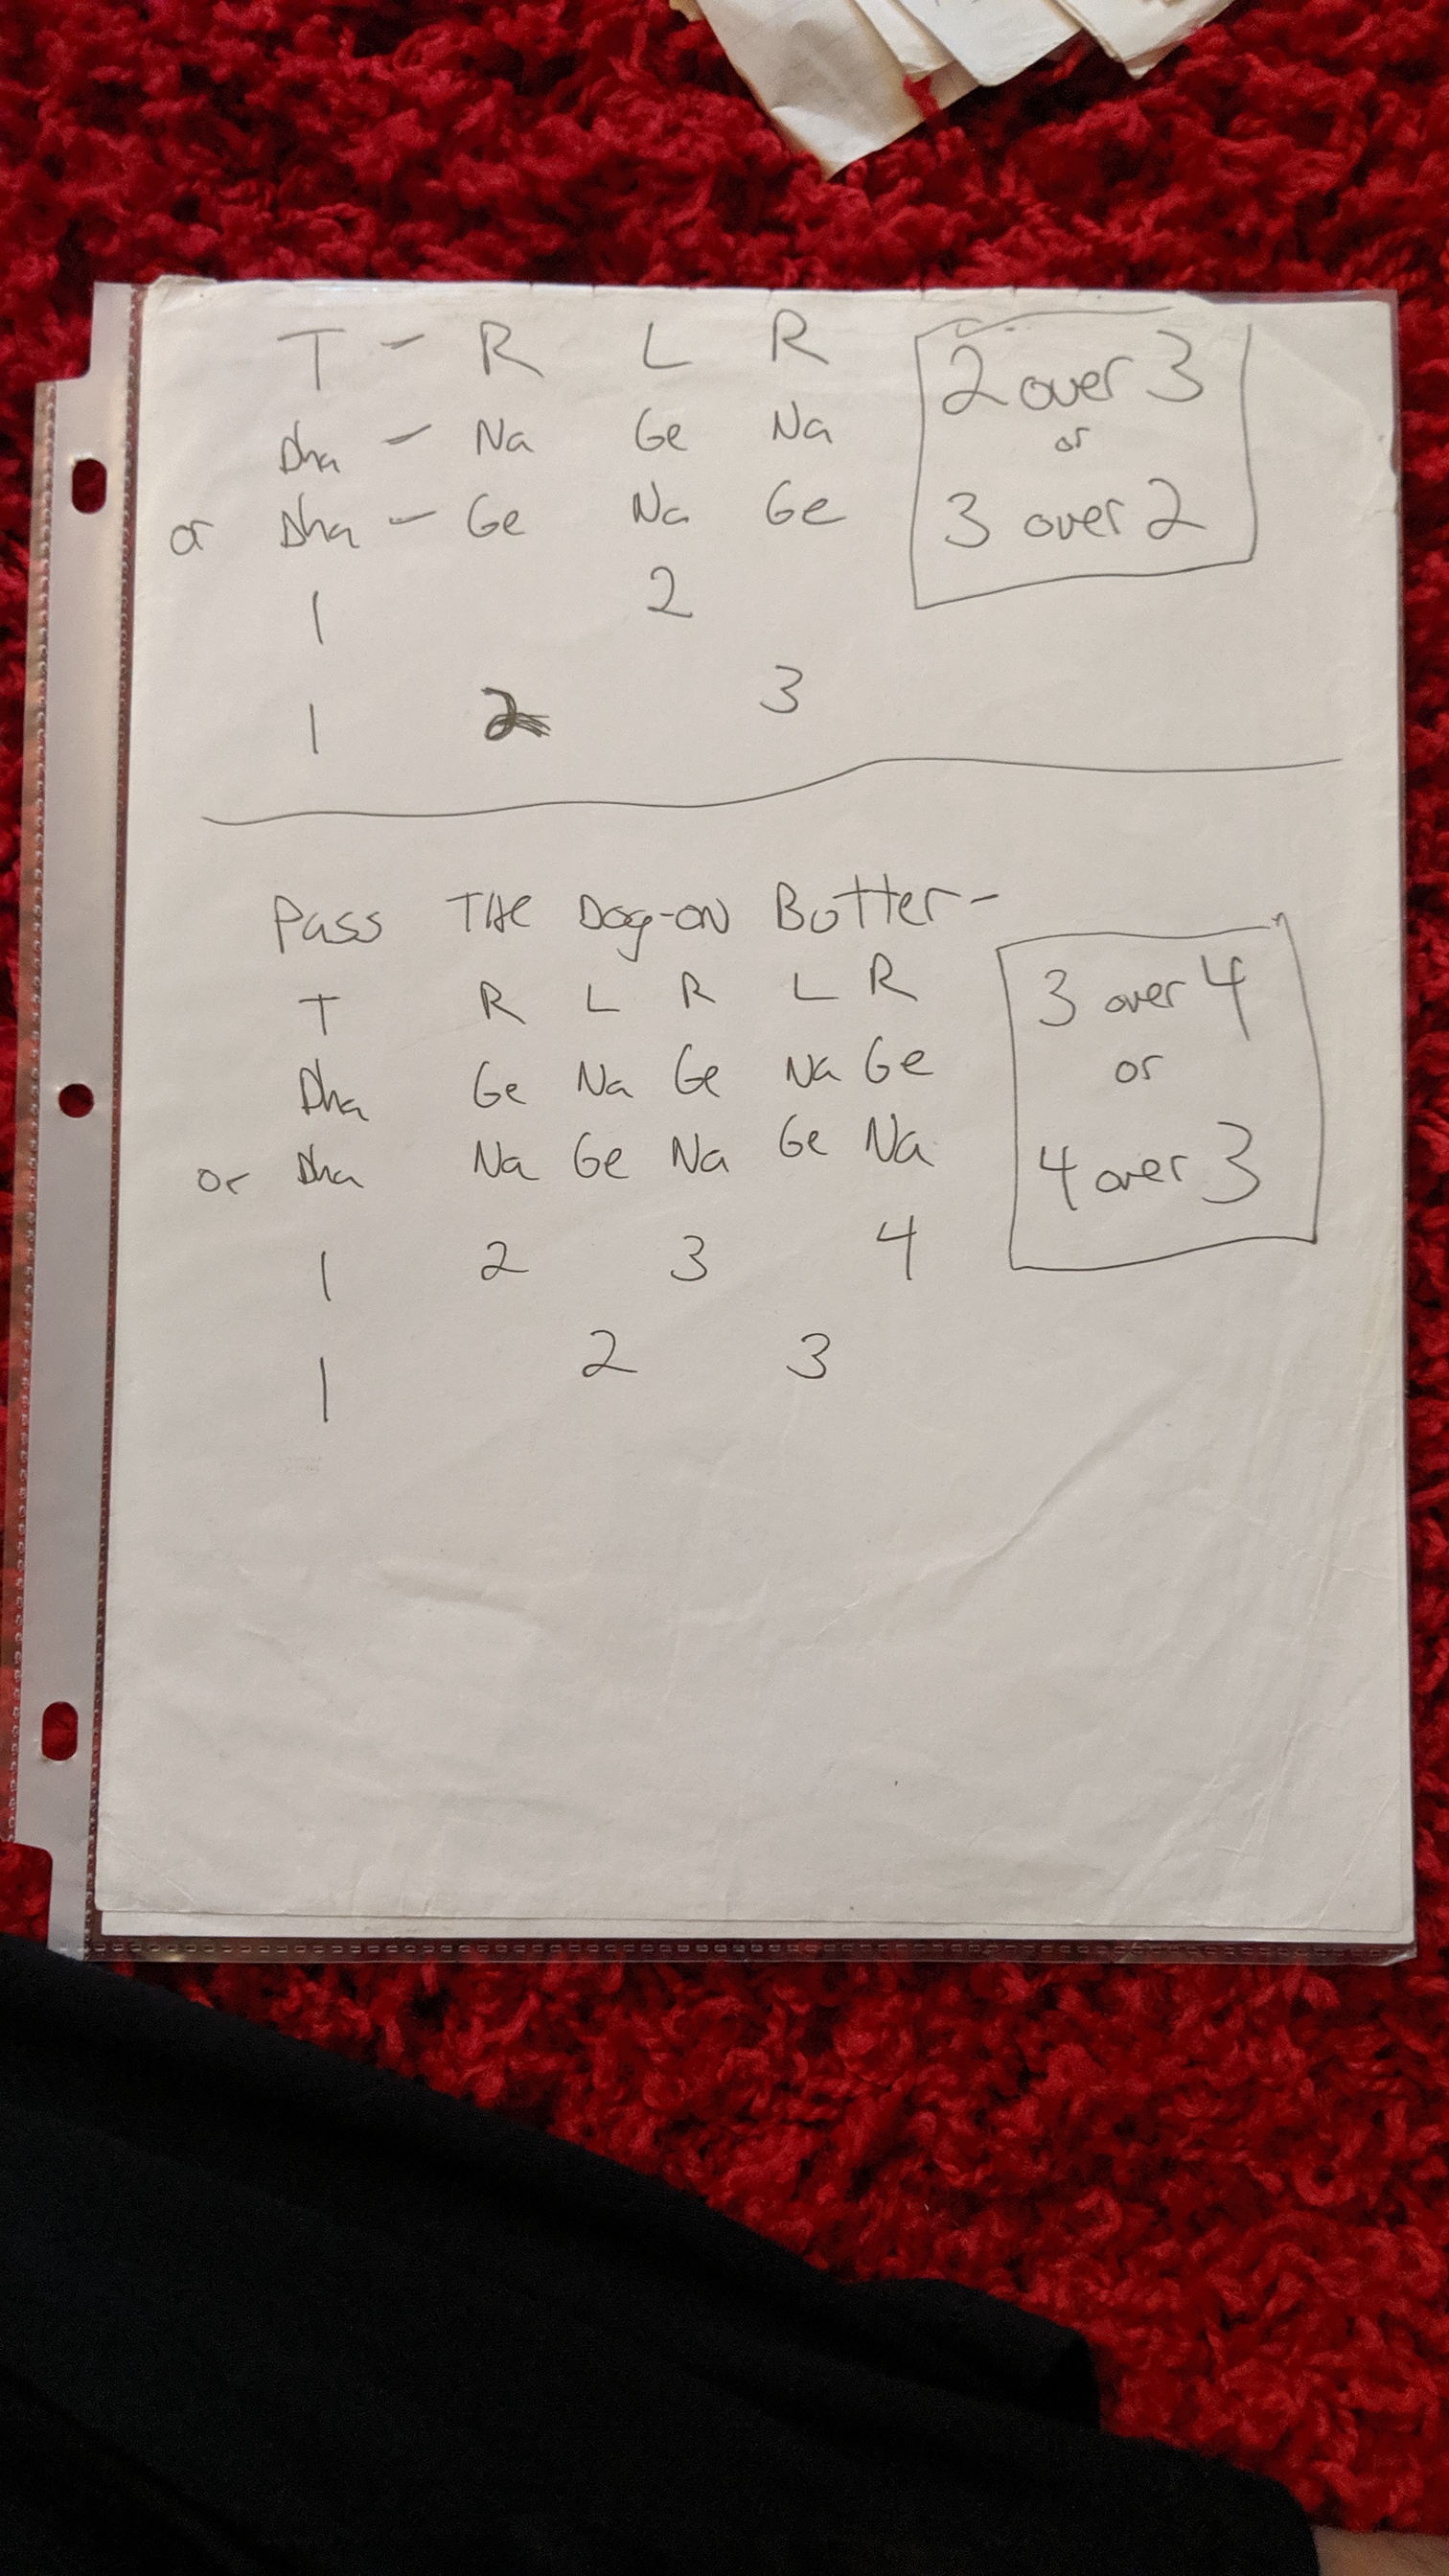 T - R L R
Dha - Na Ge Na
or Dha - Ge Na Ge
1 2
1 2 3
2 over 3
or
3 over 2
Pass THE Dog-on Butter-
T R L R L R
Dha Ge Na Ge Na Ge
or Dha Na Ge Na Ge Na
1 2 3 4
1 2 3
3 over 4
or
4 over 3